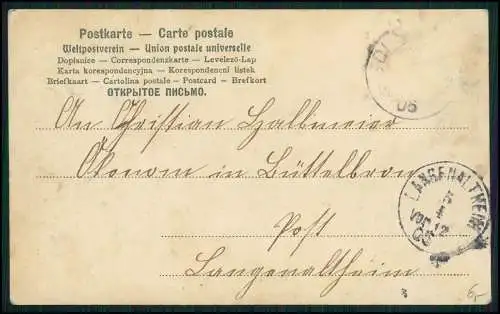 Postkarte — Carte postale
Weltpostverein — Union postale universelle
Dopisnice — Correspondenzkarte — Levelező-Lap
Karta korespondencyjna — Korespondencni listek
Briefkaart — Cartolina postale — Postcard — Brefkort
ОТКРЫТОЕ ПИСЬМО.
An Christian Halbmeier
Ökonom in Büttelbron
Post
Langenaltheim
LANGENALTHEIM
06
6,-